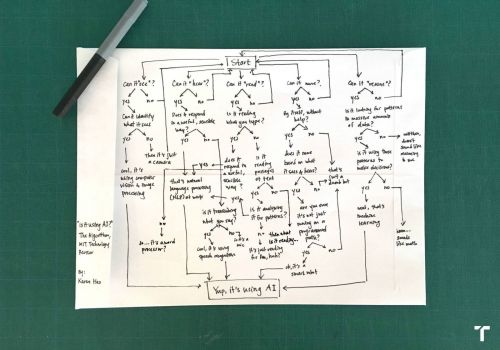 Start
Can it "see"?
yes no
Can it identify
what it sees
yes no
Then it's just
a camera
cool, it's
using computer
vision & image
processing
Can it "hear"?
yes no
Does it respond
in a useful, sensible
way?
yes no
that's natural
language processing
yes
is it transcribing
what you say?
yes no
cool, it's using
speech recognition
Can it "read"?
yes no
Is it reading
what you type?
yes no
does it
respond to
in a useful,
sensible way?
yes no
so... it's a word
processor?
is it
reading
passages
of text
yes no
is it analyzing
it for patterns?
yes no
then what
is it reading...
It's just reading
for fun, huh?
Can it move?
yes no
By itself, without
help?
yes no
does it move
based on what
it sees & hears?
yes no
that's
just a
dumb bot
are you sure
it's not just
moving on a
preprogrammed
path?
yes no
ok, it's a
smart bot
Can it "reason"?
yes no
Is it looking for patterns
in massive amounts
of data?
yes no
doesn't
sound like
reasoning
to me
is it using those
patterns to make
decisions?
yes no
neat, that's
machine
learning
sounds like math
Yup, it's using AI
"is it using AI?"
The Algorithm,
MIT Technology
Review
By:
Karen Hao